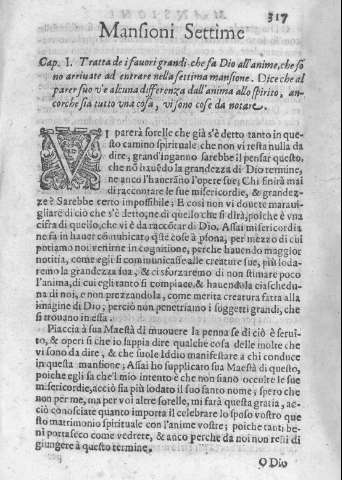 317
Mansioni Settime
Cap. I. Tratta de i fauori grandi che fa Dio all'anime, che sō
no arriuate ad entrare nella settima mansione. Dice che al
parer suo v'è alcuna differenza dall'anima allo spirito, an-
corche sia tutto vna cosa, vi sono cose da notare.
VI parerà sorelle che già s'è detto tanto in que-
sto camino spirituale che non vi resta nulla da
dire, grand'inganno sarebbe il pensar questo,
che nō hauēdo la grandezza di Dio termine,
ne anco l'haueràno l'opere sue; Chi finirà mai
di raccontare le sue misericordie, & grandez-
ze è Sarebbe certo impossibile; E cosi non vi douete maraui-
gliare di ciò che s'è detto, ne di quello che si dirà, poiche è vna
cifra di quello, che vi è da raccōtar di Dio. Assai misericordia
ne fa in hauer communicato q̄ste cose à psona, per mezzo di cui
potiamo noi venirne in cognitione, perche hauendo maggior
notitia, come egli si communica sse alle creature sue, più loda-
remo la grandezza sua, & ci sforzaremo di non stimare poco
l'anima, di cui egli tanto si compiace, & hauendola ciaschedu-
na di noi, e non prezzandola, come merita creatura fatta alla
imagine di Dio; perciò non penetriamo i soggetti grandi, che
si trouano in essa.
Piaccia à sua Maestà di muouere la penna se di ciò è serui-
to, & operi si che io sappia dire qualche cosa delle molte che
vi sono da dire, & che suole Iddio manifestare a chi conduce
in questa mansione; Assai ho supplicato sua Maestà di questo,
poiche egli sa che'l mio intento è che non siano occulte le sue
misericordie, acciò sia più lodato il suo santo nome; spero che
non per me, ma per voi altre sorelle, mi farà questa gratia, ac-
ciò conosciate quanto importa il celebrare lo sposo vostro que
sto matrimonio spirituale con l'anime vostre; poiche tanti be-
ni porta seco come vedrete, & anco perche da noi non resti di
giungere à questo termine.
O Dio